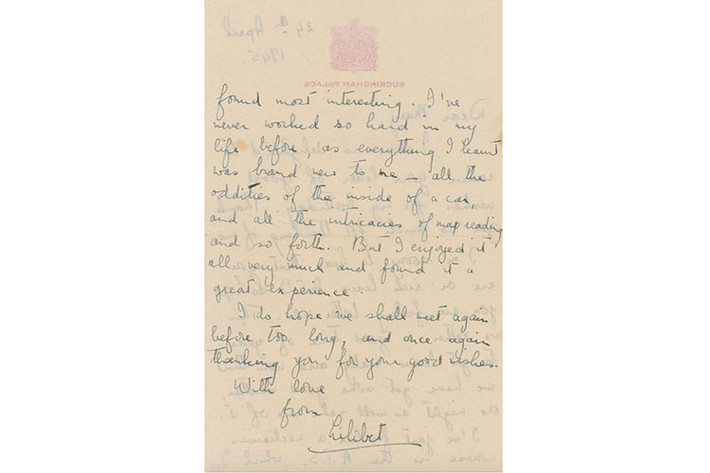 found most interesting. I've
never worked so hard in my
life before, as everything I learnt
was brand new to me – all the
oddities of the inside of a car,
and all the intricacies of map reading
and so forth. But I enjoyed it
all very much and found it a
great experience
I do hope we shall meet again
before too long, and once again
thanking you for your good wishes.
With love
from
Lilibet
24th April
1945.
BUCKINGHAM PALACE